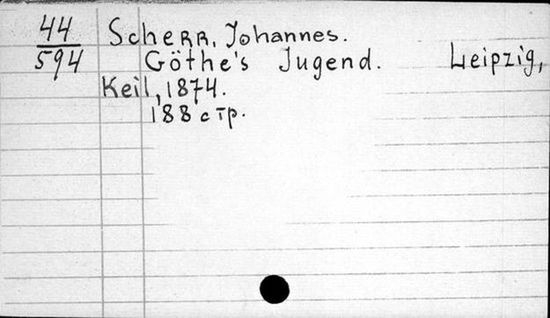 44
594
Scherr, Johannes.
Göthe's Jugend. Leipzig,
Keil, 1874.
188 стр.